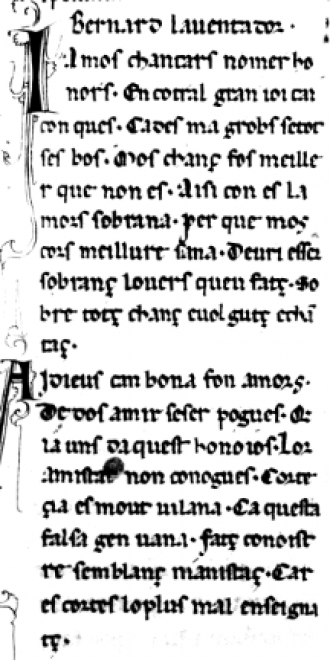 Bernard laventador ·
Ia mos chantars no mer ho
nors · En cotral gran ioi cai
con ques · Cades ma grobs setor
ses bos · Mos chanç fos meille
r que non es · Aisi con es la
mors sobrana · per que mos
cors meillure sana · Deuri esser
sobranç lovers queu fatç · So
bre totç chanç e uol gutç e chi
taç ·
Aidieus cm bona fon amors ·
De dos amir seser pogues · Qe
ia uns daquest honoios · Lor
amistat non conogues · Corte
çia es mout uilana · Ca questa
falsa gen uana · fatç conoist
re semblanç manistaç · Car
es cortes lo plus mal enseigna
tç ·